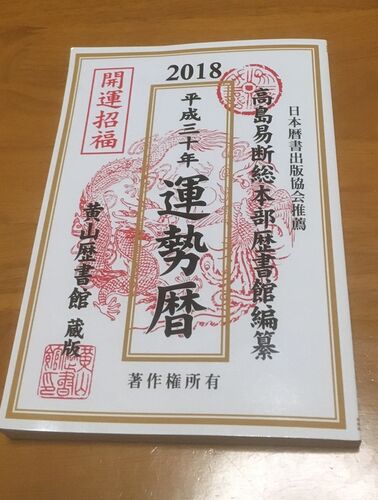 2018
日本暦書出版協会推薦
高島易断総本部歴書館・編纂
平成三十年
運勢暦
開運招福
黄山歴書館 蔵版
著作権所有